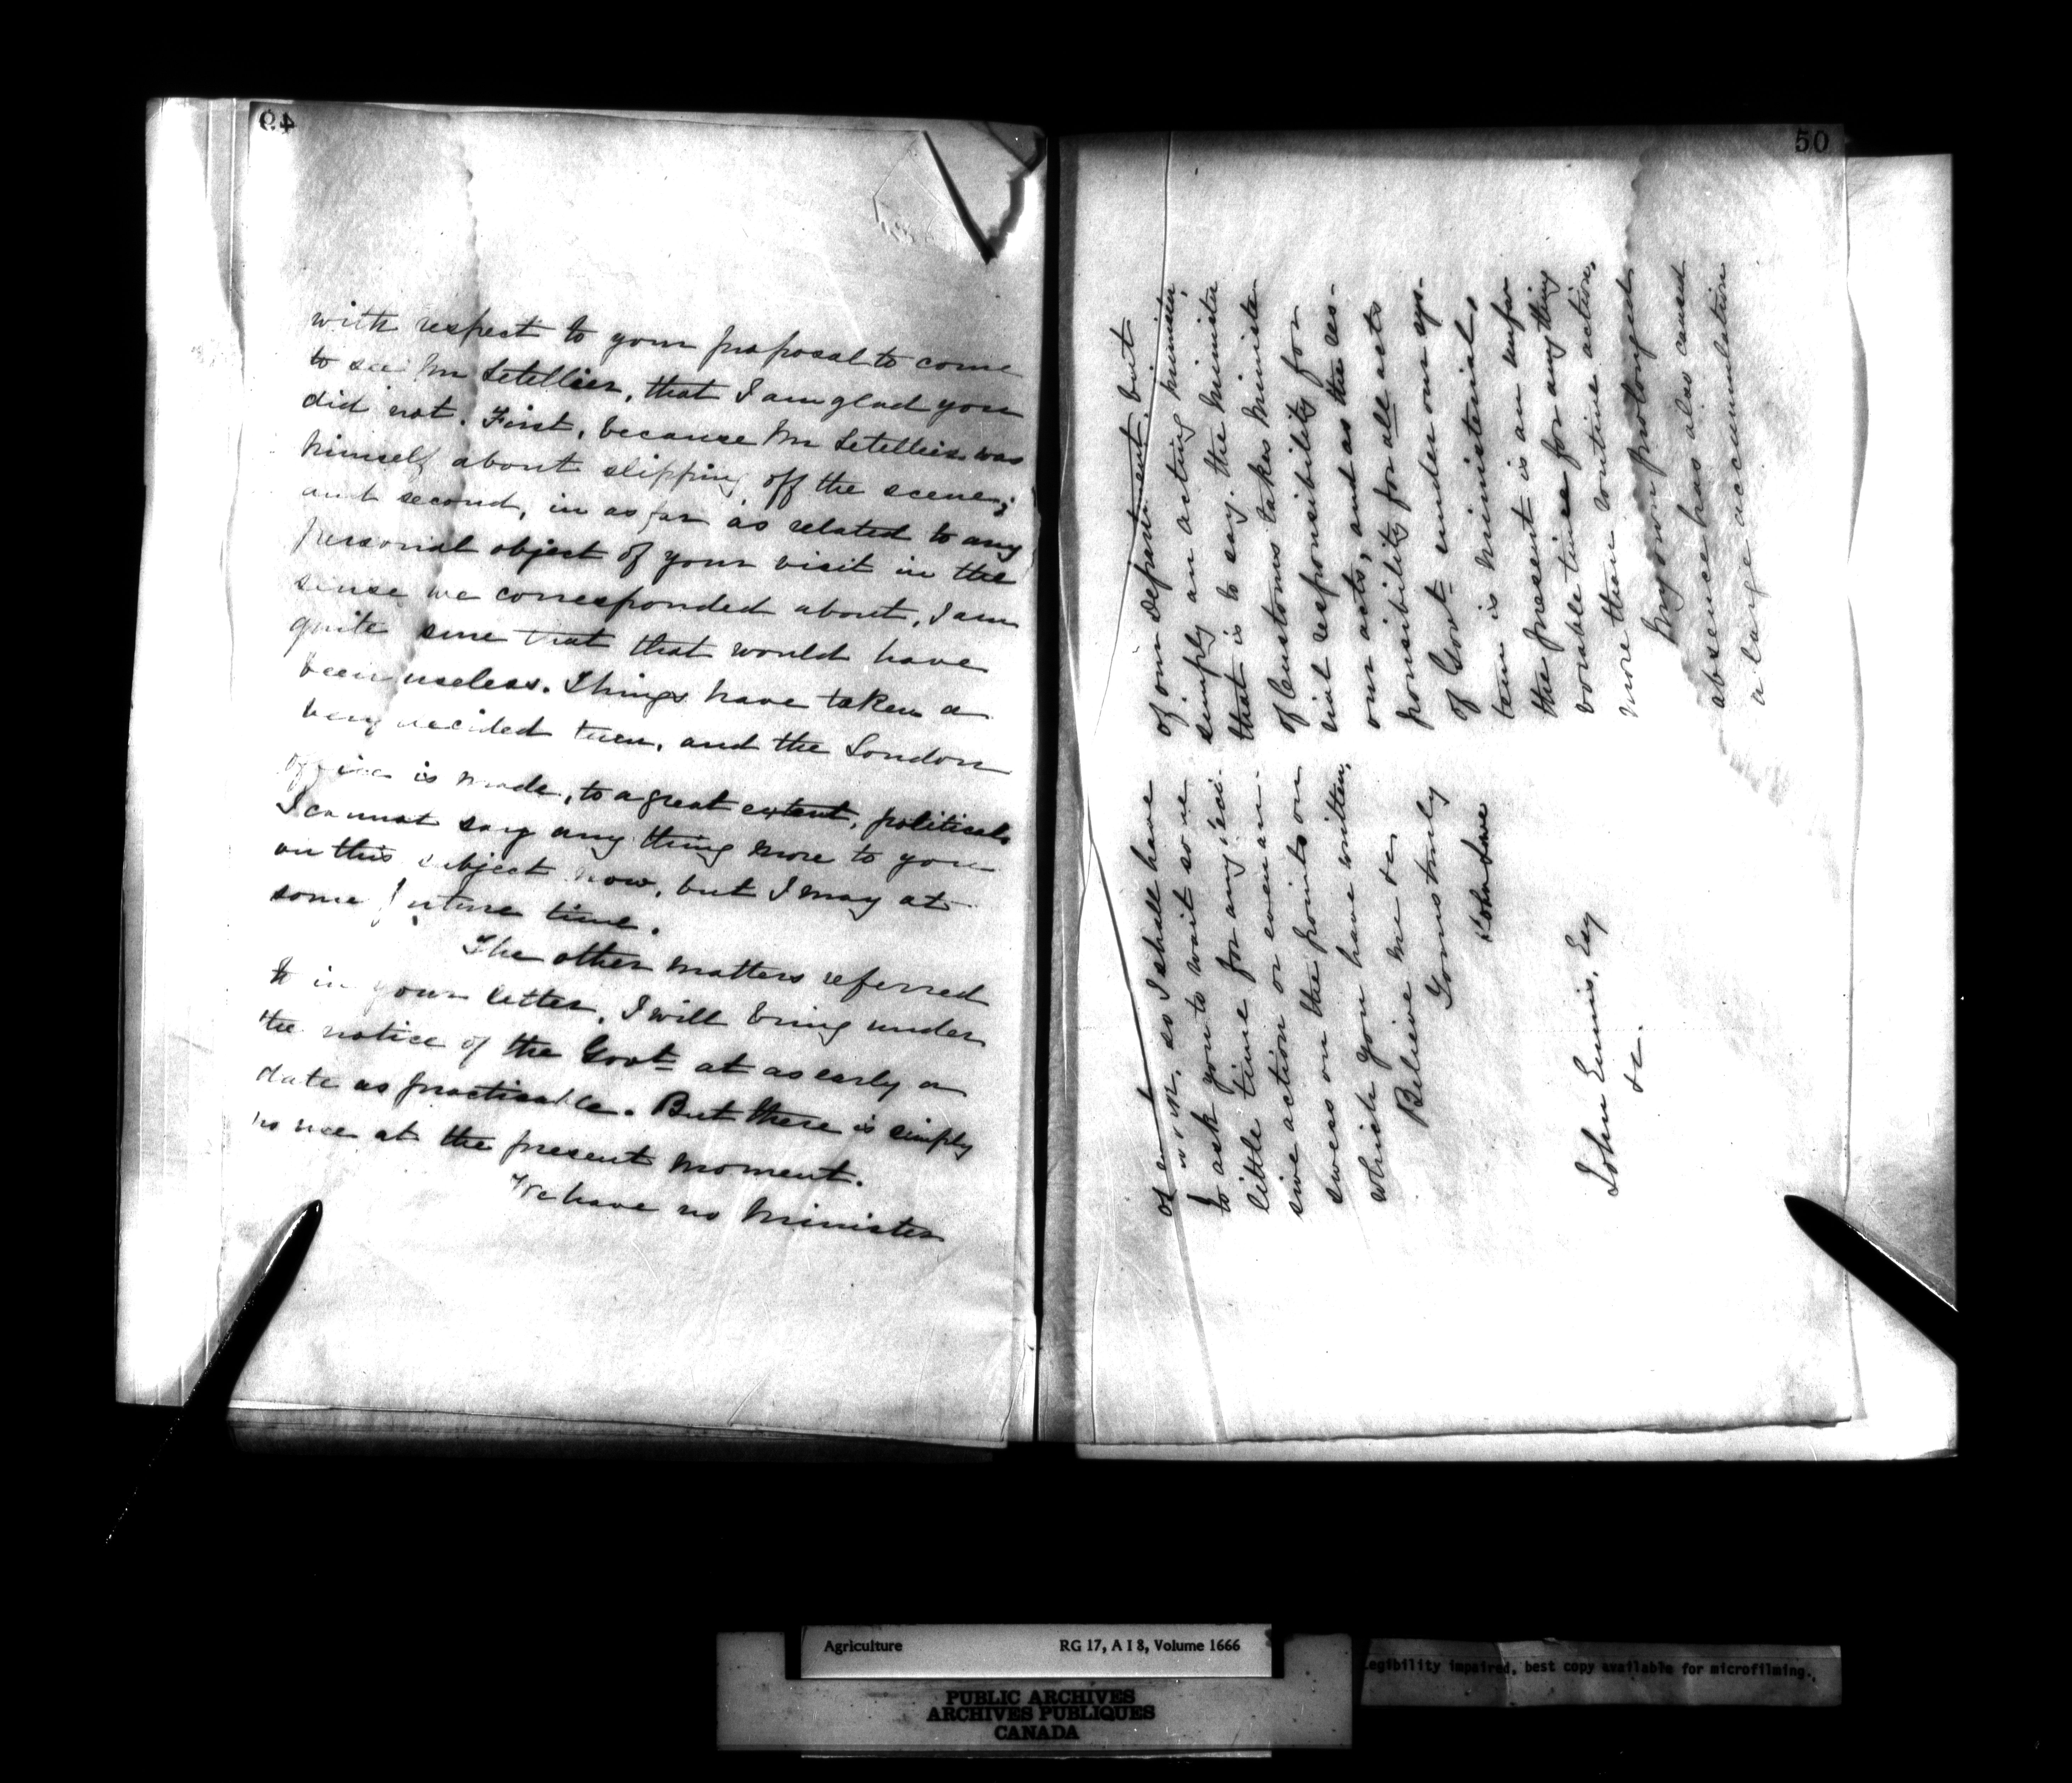 49
with respect to your proposal to come
to see Mr Letellier, that I am glad you
did not. First, because Mr Letellier was
himself about slipping off the scene;
and second, in as far as related to any
personal object of your visit in the
sense we corresponded about, I am
quite sure that that would have
been useless. Things have taken a
very decided turn, and the London
office is made, to a great extent, political.
I cannot say any thing more to you
on this subject now, but I may at
some future time.
The other matters referred
to in your letter, I will bring under
the notice of the Govt at as early a
date as practicable. But there is simply
no use at the present moment.
We have no Minister
50
of our Department, but
simply an acting Minister,
that is to say, the Minister
of Customs takes Ministe-
rial responsibility for
our acts, and as the res-
ponsibility for all acts
of Govt under our sys-
tem is Ministerial,
the present is an unfa-
vorable time for any thing
more than routine action.
My own prolonged
absence has also caused
a large accumulation
of
work, so I shall have
to ask you to wait some
little time for any deci-
sive action or even an-
swers on the points on
which you have written.
Believe me &c
Yours truly
John Lowe
John Ennis, Esq
&c.
Agriculture RG 17, A I 8, Volume 1666
Legibility impaired, best copy available for microfilming.
PUBLIC ARCHIVES
ARCHIVES PUBLIQUES
CANADA